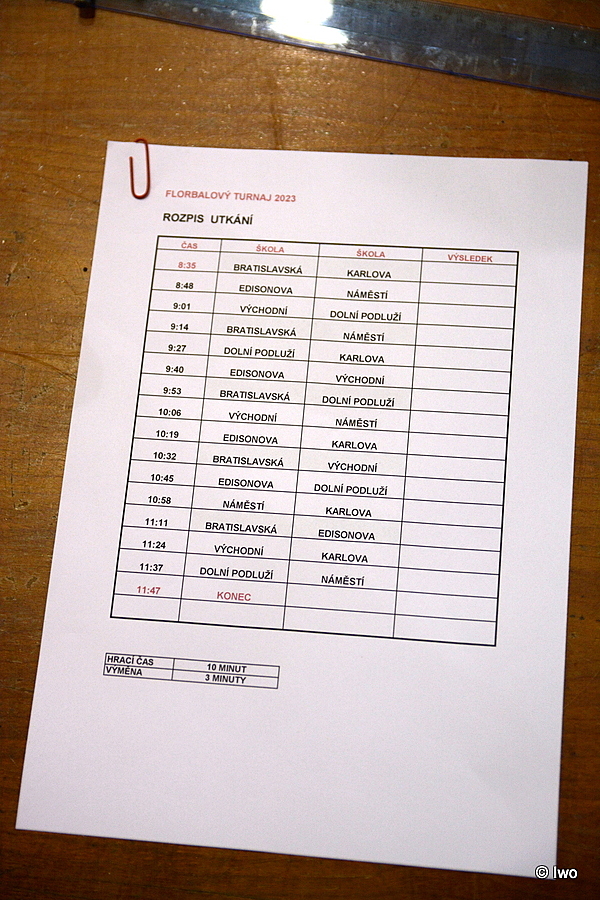 FLORBALOVÝ TURNAJ 2023
ROZPIS UTKÁNÍ
ČAS ŠKOLA ŠKOLA VÝSLEDEK
8:35 BRATISLAVSKÁ KARLOVA
8:48 EDISONOVA NÁMĚSTÍ
9:01 VÝCHODNÍ DOLNÍ PODLUŽÍ
9:14 BRATISLAVSKÁ NÁMĚSTÍ
9:27 DOLNÍ PODLUŽÍ KARLOVA
9:40 EDISONOVA VÝCHODNÍ
9:53 BRATISLAVSKÁ DOLNÍ PODLUŽÍ
10:06 VÝCHODNÍ NÁMĚSTÍ
10:19 EDISONOVA KARLOVA
10:32 BRATISLAVSKÁ VÝCHODNÍ
10:45 EDISONOVA DOLNÍ PODLUŽÍ
10:58 NÁMĚSTÍ KARLOVA
11:11 BRATISLAVSKÁ EDISONOVA
11:24 VÝCHODNÍ KARLOVA
11:37 DOLNÍ PODLUŽÍ NÁMĚSTÍ
11:47 KONEC
HRACÍ ČAS 10 MINUT
VÝMĚNA 3 MINUTY
© Iwo